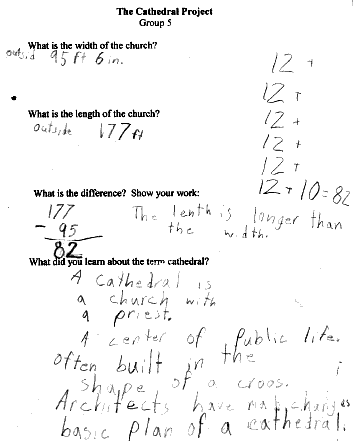 The Cathedral Project
Group 5
What is the width of the church?
outsid 95 ft 6 in.
12 +
12 +
What is the length of the church?
outside 177 ft
12 +
12 +
12 +
12 + 10 = 82
What is the difference? Show your work:
177
- 95
82
The lenth is longer than
the width.
What did you learn about the term cathedral?
A cathedral is
a church with
a priest.
A center of public life.
often built in the
shape of a croos.
Architects have changes
basic plan of a cathedral.